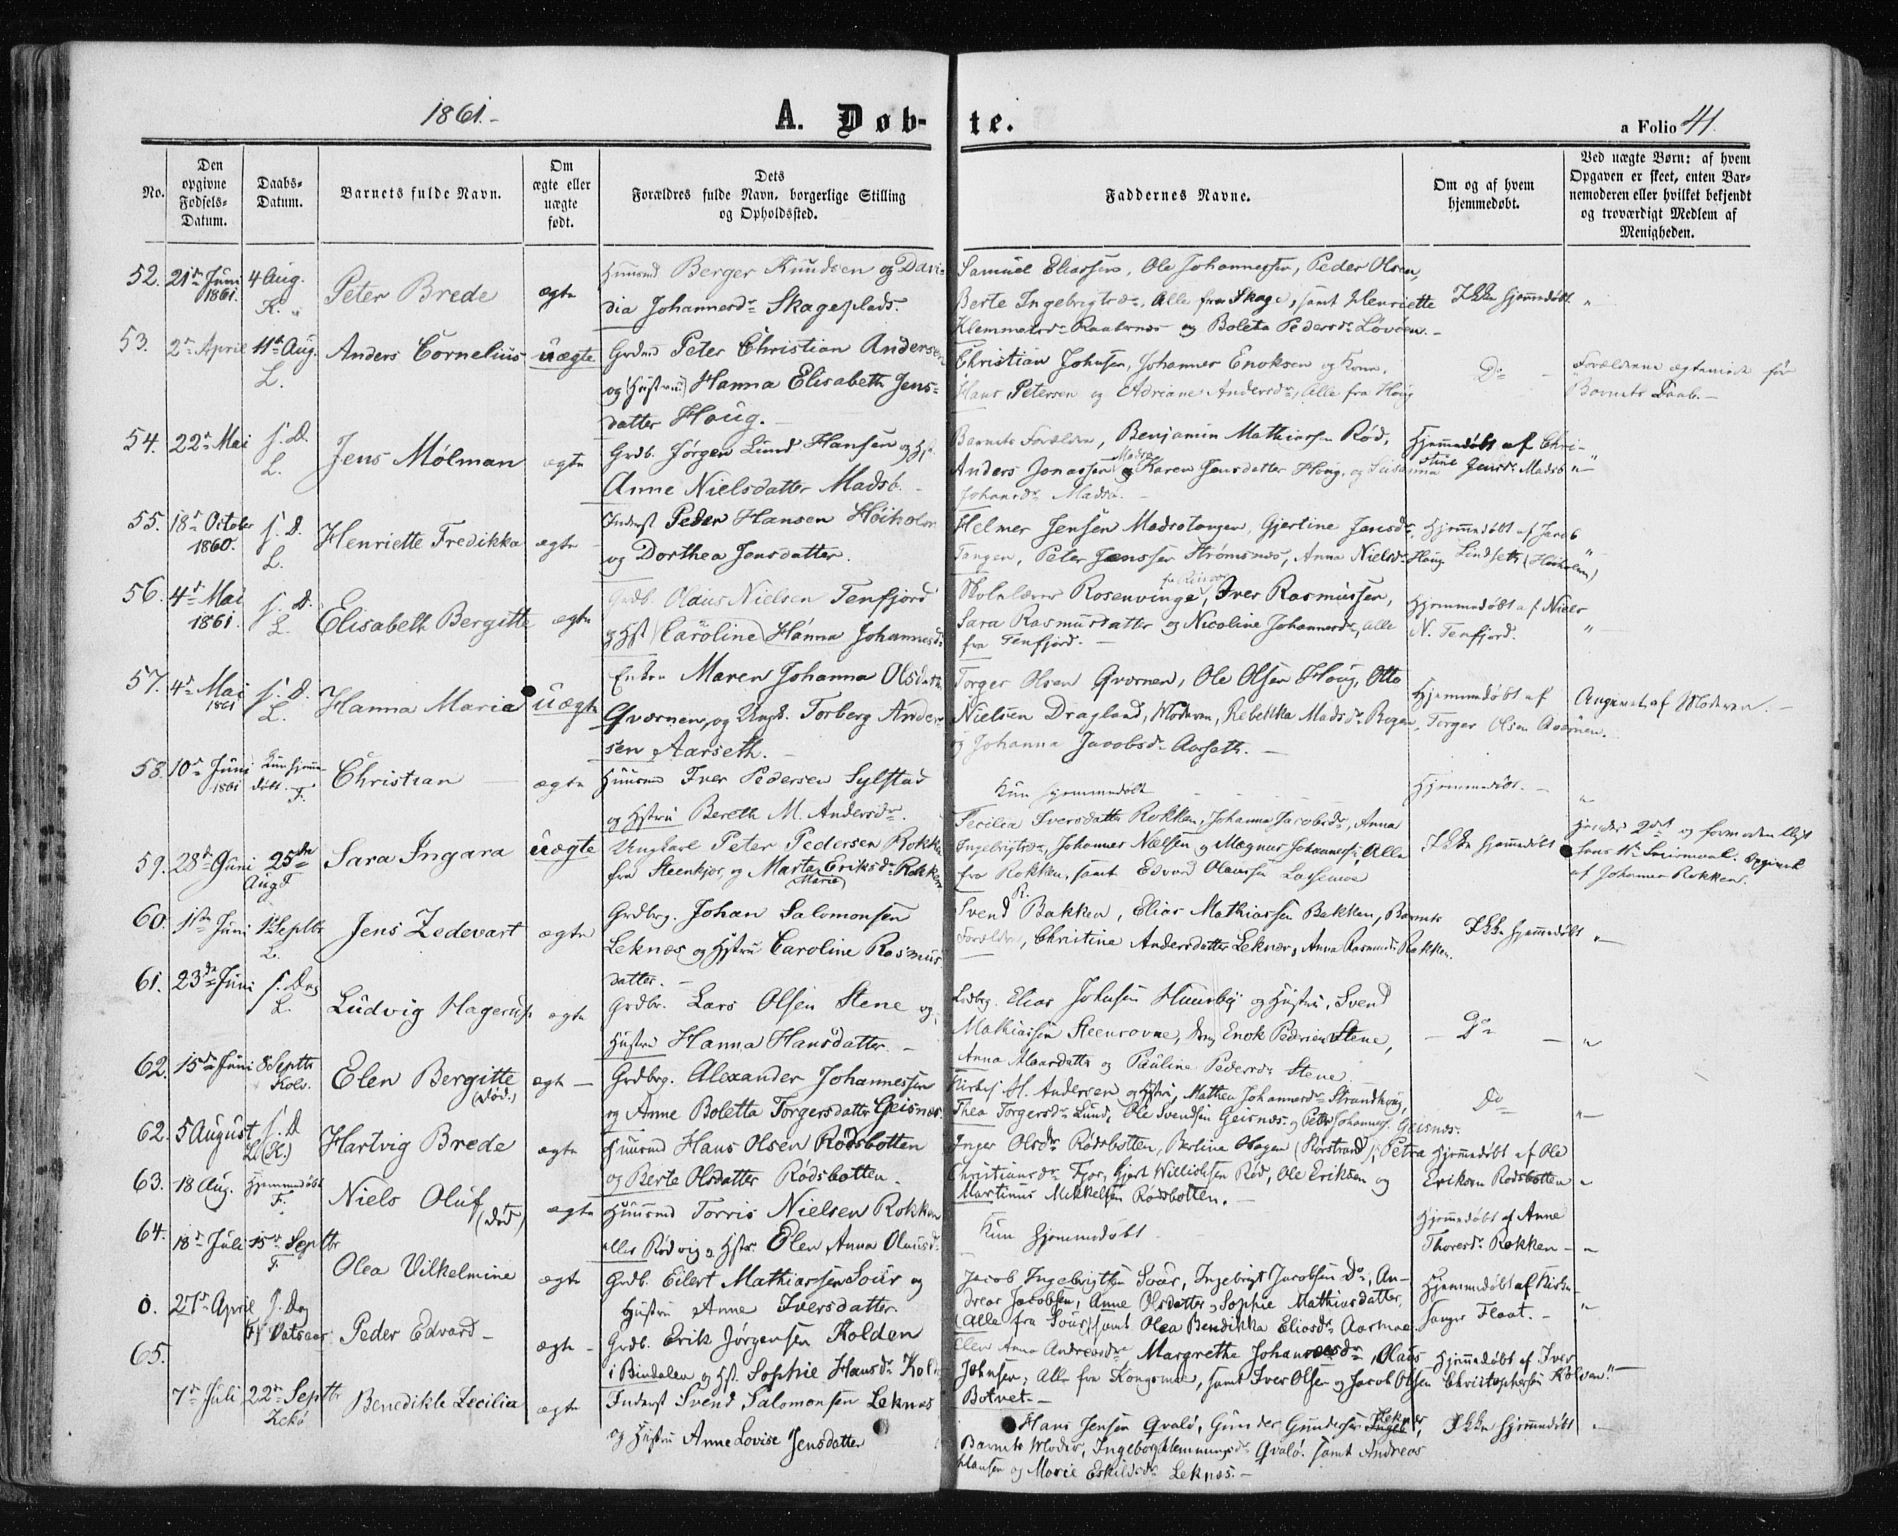 1861.-
A. Døb-
te.
a Folio 41.
No.
Den opgivne Fødsels-Datum.
Daabs-Datum.
Barnets fulde Navn.
Om ægte eller uægte født.
Dets Forældres fulde Navn, borgerlige Stilling og Opholdssted.
Faddernes Navne.
Om og af hvem hjemmedøbt.
Ved uægte Børn: af hvem Opgaven er skeet, enten Barnemoderen eller hvilket bekjendt og troværdigt Medlem af Menigheden.
52. 21de Juni 1861. 4 Aug. K. "
Peter Brede
ægte
Huusmd Berger Knudsen og Davi-
dia Johannesdr Skageplads.
Samuel Eliassen, Ole Johannessen, Peder Olsen,
Berte Ingebrigtsdr, Alle fra Skage, samt Henriette
Klemmetsdr og Boleta Pedersdr Løvøen.-
Ikke hjemmedøbt. "
53. 2den April 11te Aug. L.
Anders Cornelius
uægte
Grdmd Peter Christian Andersen
og Hustru Hanna Elisabeth Jens-
datter Houg.
Christian Johnsen, Johannes Enoksen og Kone,
Hans Petersen og Adriane Andersdr, Alle fra Houg
Do -
Forældrene ægteviede før
Barnets Daab.-
54. 22de Mai s. D. L.
Jens Mølman
ægte
Grdb. Jørgen Lund Hansen og Hst.
Anne Nielsdatter Madsb.
Barnets Forældre, Benjamin Mathiassen Rød,
Anders Jonassen Madsø og Karen Jensdatter Houg, og Susanna
Johansdr Madsø. -
Hjemmedøbt af Chri-
stine Jensdr Madsø "
55. 18de October 1860. s. D. L.
Henriette Fredikka
ægte
Inderst Peder Hansen Høiholm
og Dorthea Jensdatter.
Helmer Jensen Madsøtangen, Gjertine Jensdr
Tangen, Peter Jenssen Strømsnes, Anna Nielsdr Houg
Hjemmedøbt af Jacob
Lindseth (Høiholm) "
56. 4de Mai 1861. s. D. L.
Elisabeth Bergitte
ægte
Grdb. Olaus Nielsen Tenfjord
og Hst Caroline Hanna Johannesdr
Skolelærer Rosenvinge, Iver Rasmussen,
Sara Rasmusdatter og Nicoline Johannesdr, alle
fra Tenfjord. -
Hjemmedøbt af Niels
N. Tenfjord. "
57. 4de Mai 1861 s. D. L.
Hanna Maria
uægte
Enken Maren Johanna Olsdatr
Qværnen, og Ungk. Torberg Ander-
sen Aarseth. -
Torger Olsen Qværnen, Ole Olsen Houg, Otto
Nielsen Dragland, Moderen, Rebekka Madsdr Rogen,
og Johanna Jacobsdr Aarseth. -
Hjemmedøbt af
Torger Olsen Qværnen.
Angivet af Moderen. -
58. 10de Juni 1861 Kun hjemmedøbt. F.
Christian -
ægte
Huusmd Iver Pedersen Sylstad
og Hstru Bereth M. Andersdr.
Kun hjemmedøbt
Hjemmedøbt. - "
59. 28de Juni 25de Augt
Sara Ingara
uægte
Ungkarl Peter Pedersen Rokken
fra Steenkjær, og Marta Eriksdr Rokken
(Maria)
Cecilia Iversdatter Rokken, Johanna Jacobsdr, Anna
Ingebrigtsdr, Johannes Nielsen og Magnus Johannesen Alle
fra Rokken, samt Edvard Olaussen Lassemoe
Ikke hjemmedøbt
Hendes 2det og formodentligt
hans 1ste Leiermaal. Opgivet
af Johannes Rokken.
60. 11te Juni 1 Septbr L.
Jens Zedevart
ægte
Grdbrg. Johan Salomonsen
Leknes og Hstru Caroline Rasmus-
datter. -
Svend Bakken, Elias Mathiassen Bakken, Barnets
Forældre, Christine Andersdatter Leknes, Anna Rasmusdr Rokken.
Ikke hjemmedøbt "
61. 23de Juni s. Dag L.
Ludvig Hagerup
ægte
Grdbr. Lars Olsen Stene og
Hustru Hanna Hansdatter. -
Ledbrg. Elias Johnsen Huusby og Hustru, Svend
Mathiassen Steensovne, Enok Pedersen Stene,
Anna Larsdatter og Pauline Pedersdr Stene
- Do - "
62. 15de Juni 8 Septbr Kolv.
Elen Bergitte
(død.)
ægte -
Grdbrg. Alexander Johannessen
og Anne Boletta Torgersdatter Geisnes
M. Andersen og Hstru, Mathea Johannesdr Strandhoug,
Thea Torgersdr Lund, Ole Svendsen Geisnes, og Peter Johannes. Geisnes.
Do "
62. 5 August s. D L. (K.)
Hartvig Brede
ægte
Huusmd Hans Olsen Rødsbotten
og Berte Olsdatter Rødsbotten.
Inger Olsdr Rødsbotten, Berlina Olsgen (Rørstrand), Petra
Christiansdr Fjær, Gjert Willielsen Rød, Ole Eriksen og
Martinus Mikkelsen Rødsbotten. -
Hjemmedøbt af Ole
Eriksen Rødsbotten "
63. 18 Aug. Hjemmedøbt F.
Niels Oluf (død)
ægte
Huusmd Torris Nielsen Rokken
eller Rødvig og Hstr. Elen Anna Olausdr
Kun hjemmedøbt
Hjemmedøbt af Anne
Thoresdr Rokken - "
64. 18de Juli 15de Septbr F.
Olea Vilkelmine
ægte
Grdb. Eilert Mathiassen Sour og
Hustru Anne Iversdatter
Jacob Ingebrigtsen Sour, Ingebrigt Jacobsen Do, An-
dreas Jacobsen, Anne Olsdatter og Sophie Mathiasdatter,
(Alle fra Sour) samt Olea Bendikka Eliasdr Aarmoe.
Hjemmedøbt af Kirke-
sanger Flaat. - "
0. 27de April s. Dag F. Vatsaas
Peder Edvard -
ægte -
Grdb. Erik Jørgensen Kolden
i Bindalen og Hst. Sophie Hansdr Kold
Elen Anna Andreasdr Margrethe Johannesdr, Olaus
Johnsen, Alle fra Kongsmoe, samt Iver Olsen og Jacob Olsen
Botvet.-
Hjemmedøbt af Iver
Christophersen Kolden." -
65. 7de Juli 22de Septbr Lekø
Benedikte Zecilia
ægte
Inderst Svend Salomonsen Leknes
og Hustru Anne Lovise Jensdatter
Hans Jensen Qvalø, Gunder Gundersen Leknes,
Barnets Moder, Ingeborg Klemmingsdr Qvalø. samt Andreas
Hansen og Marie Eskildsdr Leknes.-
Ikke hjemmedøbt "